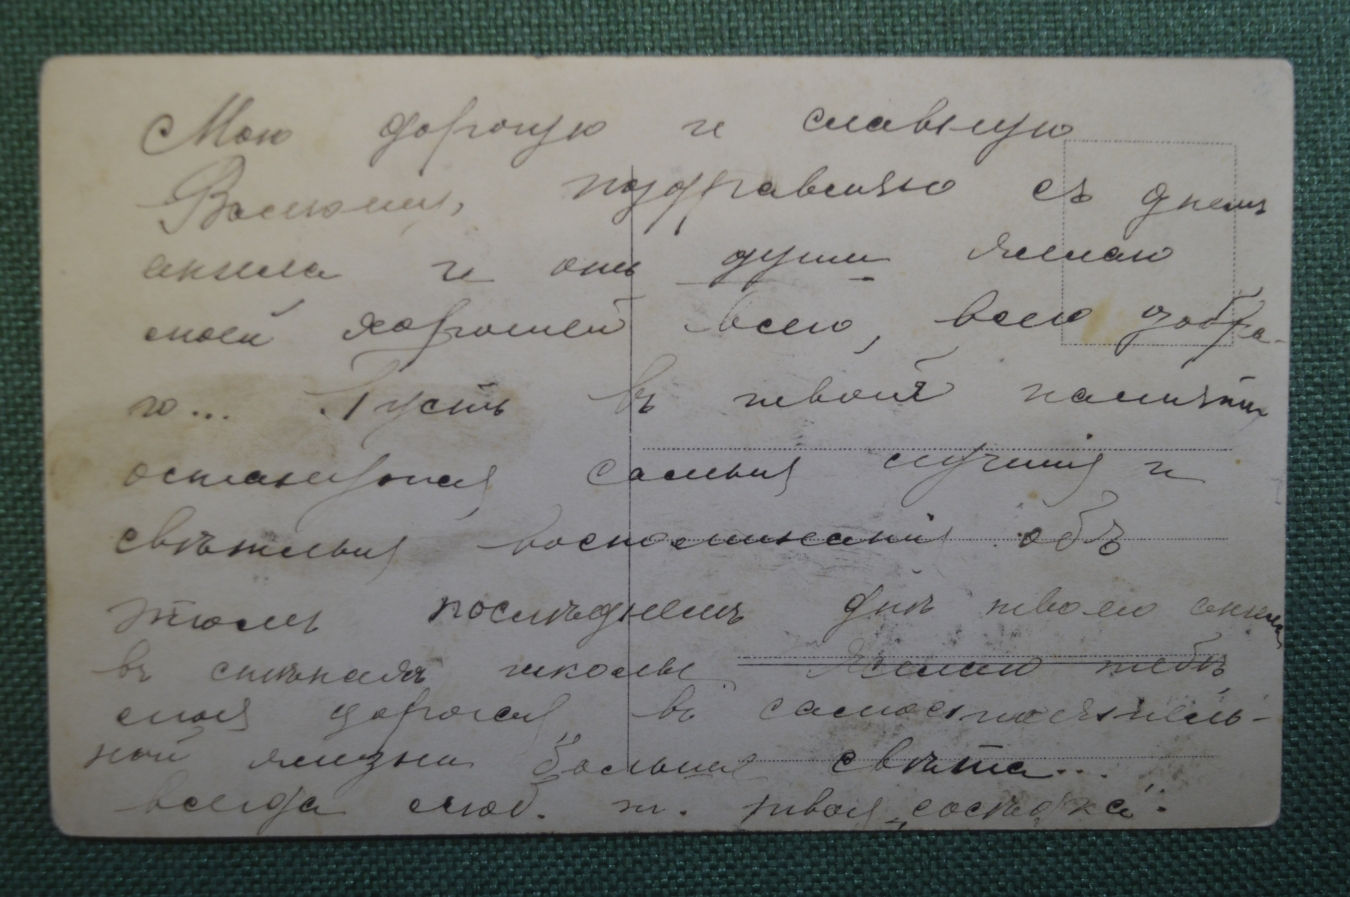 Мою дорогую и славную
поздравляю съ днемъ
ангела и отъ души желаю
моей хорошей всего, всего добра-
го... Пусть въ твоей памяти
останутся самыя лучшія и
свѣтлыя воспоминанія объ
этомъ послѣднемъ днѣ твоего ангела
въ стѣнахъ школы Желаю тебѣ
моя дорогая въ самостоятель-
ной жизни больше свѣта...
всегда люб. т. твоя „сосѣдка“.